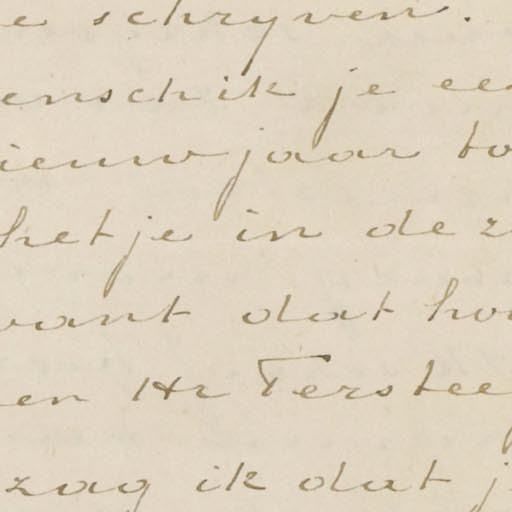 e schryven.
enschik je ee
ieuwjaar to
het je in deze
want dat ho
en Hr Terstee
zag ik dat j